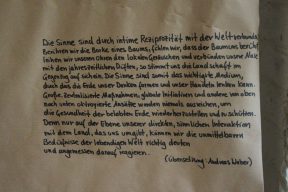 Die Sinne sind durch intime Reziprozität mit der Welt verbunden.
Berühren wir die Borke eines Baums, fühlen wir, dass der Baum uns berührt.
leihen wir unsere Ohren den lokalen Geräuschen und verbinden unsere Nase
mit den jahreszeitlichen Düften, so stimmt uns die Landschaft im
Gegenzug auf sich ein. Die Sinne sind somit das wichtigste Medium,
durch das die Erde unser Denken formen und unser Handeln lenken kann.
Große, zentralisierte Maßnahmen, globale Initiativen und andere von oben
nach unten oktroyierte Ansätze werden niemals ausreichen, um
die Gesundheit der belebten Erde wiederherzustellen und zu schützen.
Denn nur auf der Ebene unserer direkten, sinnlichen Interaktion
mit dem Land, das uns umgibt, können wir die unmittelbaren
Bedürfnisse der lebendigen Welt richtig deuten
und angemessen darauf reagieren.
(Übersetzung: Andreas Weber)